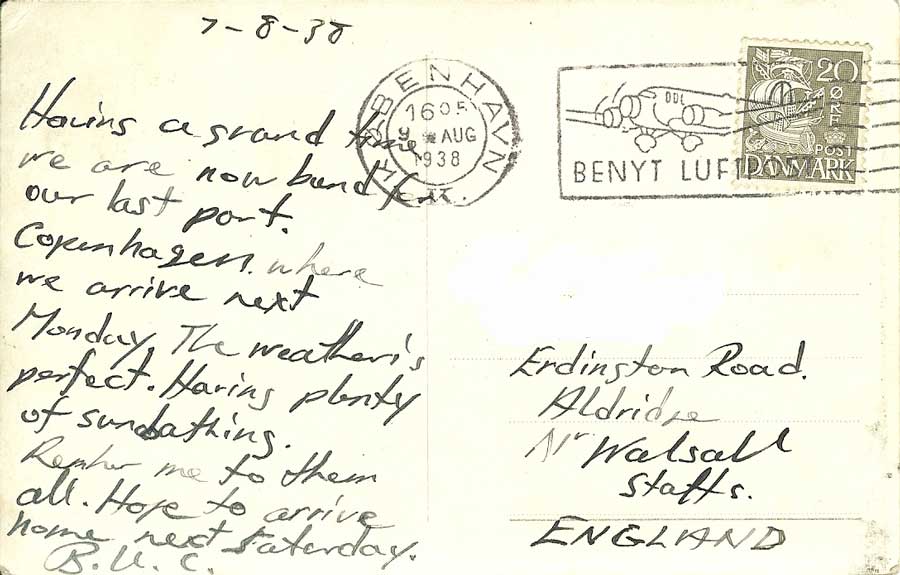 7-8-38
Having a grand time
we are now bund for
our last port.
Copenhagen. where
we arrive next
Monday. The weather's
perfect. Having plenty
of sunbathing.
Remher me to them
all. Hope to arrive
home next Saterday.
B.U.C.
KØBENHAVN
1605
9 AUG
1938
K.
DDL
BENYT LUFTPOST
20
ØRE
POST
DANMARK
Erdington Road.
Aldridge
Nr Walsall
Staffs.
ENGLAND